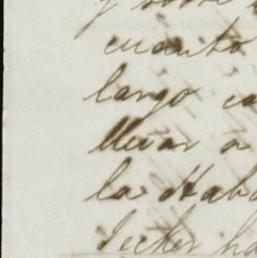 y sobre
cuanto
largo ca
llevar a
la Haba
Jecker ha